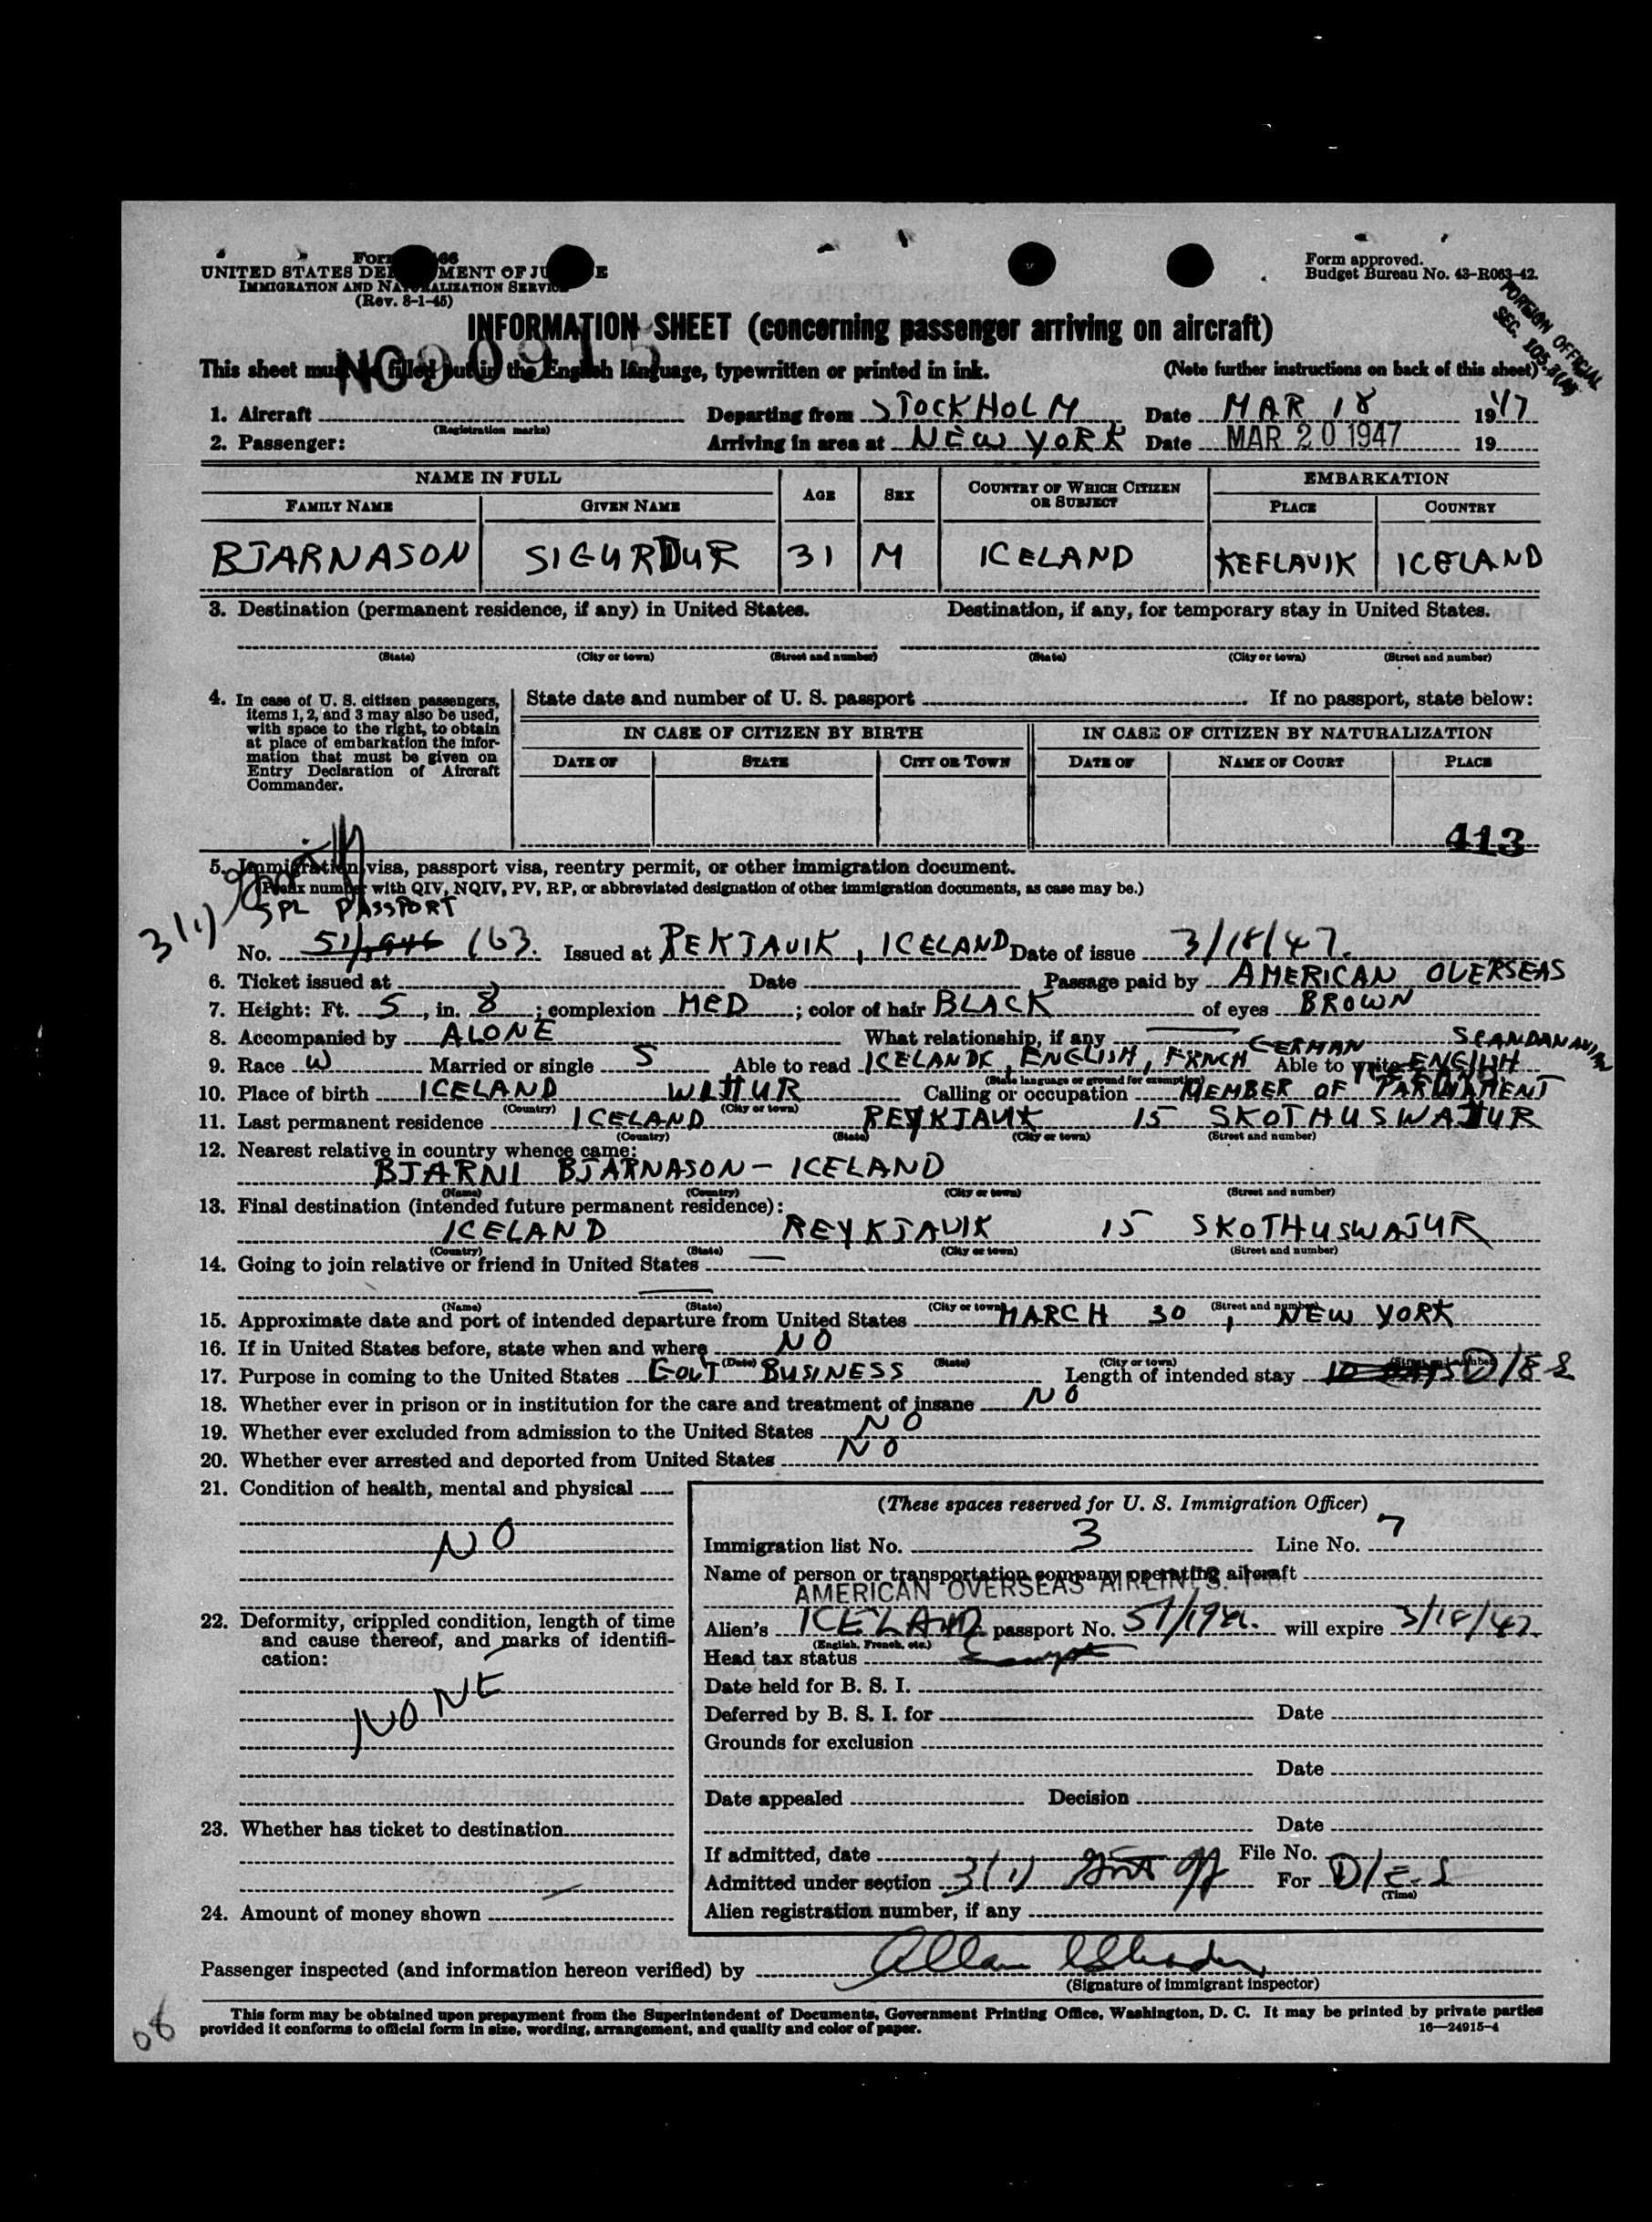 Form I-466
UNITED STATES DEPARTMENT OF JUSTICE
IMMIGRATION AND NATURALIZATION SERVICE
(Rev. 8-1-45)
Form approved.
Budget Bureau No. 43-R063-42.
FOREIGN OFFICIAL
SEC. 105.3(A)
INFORMATION SHEET (concerning passenger arriving on aircraft)
NO 90915
This sheet must be filled out in the English language, typewritten or printed in ink. (Note further instructions on back of this sheet)
1. Aircraft Departing from STOCKHOLM Date MAR 18 1947
(Registration marks)
2. Passenger: Arriving in area at NEW YORK Date MAR 20 1947 19
NAME IN FULL AGE SEX COUNTRY OF WHICH CITIZEN OR SUBJECT EMBARKATION
FAMILY NAME GIVEN NAME PLACE COUNTRY
BJARNASON SIGURDUR 31 M ICELAND KEFLAVIK ICELAND
3. Destination (permanent residence, if any) in United States. Destination, if any, for temporary stay in United States.
(State) (City or town) (Street and number) (State) (City or town) (Street and number)
4. In case of U. S. citizen passengers,
items 1, 2, and 3 may also be used,
with space to the right, to obtain
at place of embarkation the infor-
mation that must be given on
Entry Declaration of Aircraft
Commander.
State date and number of U. S. passport If no passport, state below:
IN CASE OF CITIZEN BY BIRTH IN CASE OF CITIZEN BY NATURALIZATION
DATE OF STATE CITY OR TOWN DATE OF NAME OF COURT PLACE
413
5. Immigration visa, passport visa, reentry permit, or other immigration document.
(Prefix number with QIV, NQIV, PV, RP, or abbreviated designation of other immigration documents, as case may be.)
3(1)
SPL PASSPORT
No. 51/1946 163. Issued at REKJAVIK, ICELAND Date of issue 3/18/47.
6. Ticket issued at Date Passage paid by AMERICAN OVERSEAS
7. Height: Ft. 5, in. 8; complexion MED; color of hair BLACK of eyes BROWN
8. Accompanied by ALONE What relationship, if any
GERMAN SCANDANAVIAN
9. Race W Married or single S Able to read ICELANDC, ENGLISH, FRNCH Able to write ENGLISH
(State language or ground for exemption)
10. Place of birth ICELAND Calling or occupation MEMBER OF PARLIAMENT
(Country) (City or town)
11. Last permanent residence ICELAND REYKJAVIK 15 SKOTHUSWAJUR
(Country) (State) (City or town) (Street and number)
12. Nearest relative in country whence came:
BJARNI BJARNASON - ICELAND
(Name) (Country) (City or town) (Street and number)
13. Final destination (intended future permanent residence):
ICELAND REYKJAVIK 15 SKOTHUSWAJUR
(Country) (State) (City or town) (Street and number)
14. Going to join relative or friend in United States
(Name) (State) (City or town) (Street and number)
15. Approximate date and port of intended departure from United States MARCH 30, NEW YORK
16. If in United States before, state when and where NO
(Date) (State) (City or town) (Street and number)
17. Purpose in coming to the United States GOVT BUSINESS Length of intended stay 10 DAYS D/S
18. Whether ever in prison or in institution for the care and treatment of insane NO
19. Whether ever excluded from admission to the United States NO
20. Whether ever arrested and deported from United States NO
21. Condition of health, mental and physical
NO
22. Deformity, crippled condition, length of time
and cause thereof, and marks of identifi-
cation:
NONE
23. Whether has ticket to destination
24. Amount of money shown
(These spaces reserved for U. S. Immigration Officer)
Immigration list No. 3 Line No. 7
Name of person or transportation company operating aircraft
AMERICAN OVERSEAS AIRLINES.
Alien's ICELAND passport No. 51/1946. will expire 3/18/47.
(English, French, etc.)
Head tax status Exempt
Date held for B. S. I.
Deferred by B. S. I. for Date
Grounds for exclusion
Date
Date appealed Decision
Date
If admitted, date File No.
Admitted under section 3(1) Govt off For D/S
(Time)
Alien registration number, if any
Passenger inspected (and information hereon verified) by Allan
(Signature of immigrant inspector)
This form may be obtained upon prepayment from the Superintendent of Documents, Government Printing Office, Washington, D. C. It may be printed by private parties
provided it conforms to official form in size, wording, arrangement, and quality and color of paper. 16—24915-4
08